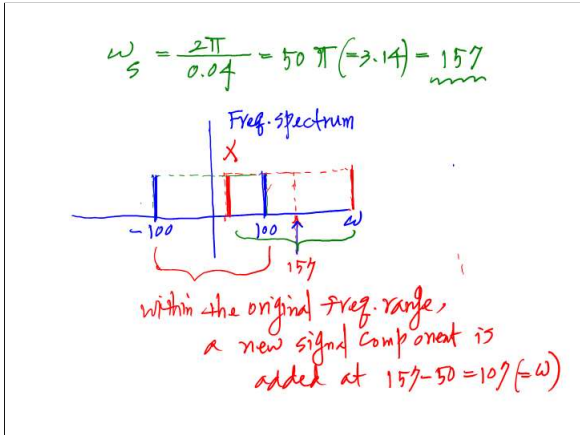 ω_s = 2π/0.04 = 50π(=3.14) = 157
Freq. spectrum
X
-100 100 ω
157
within the original freq. range,
a new signal component is
added at 157-50 = 107 (=ω)